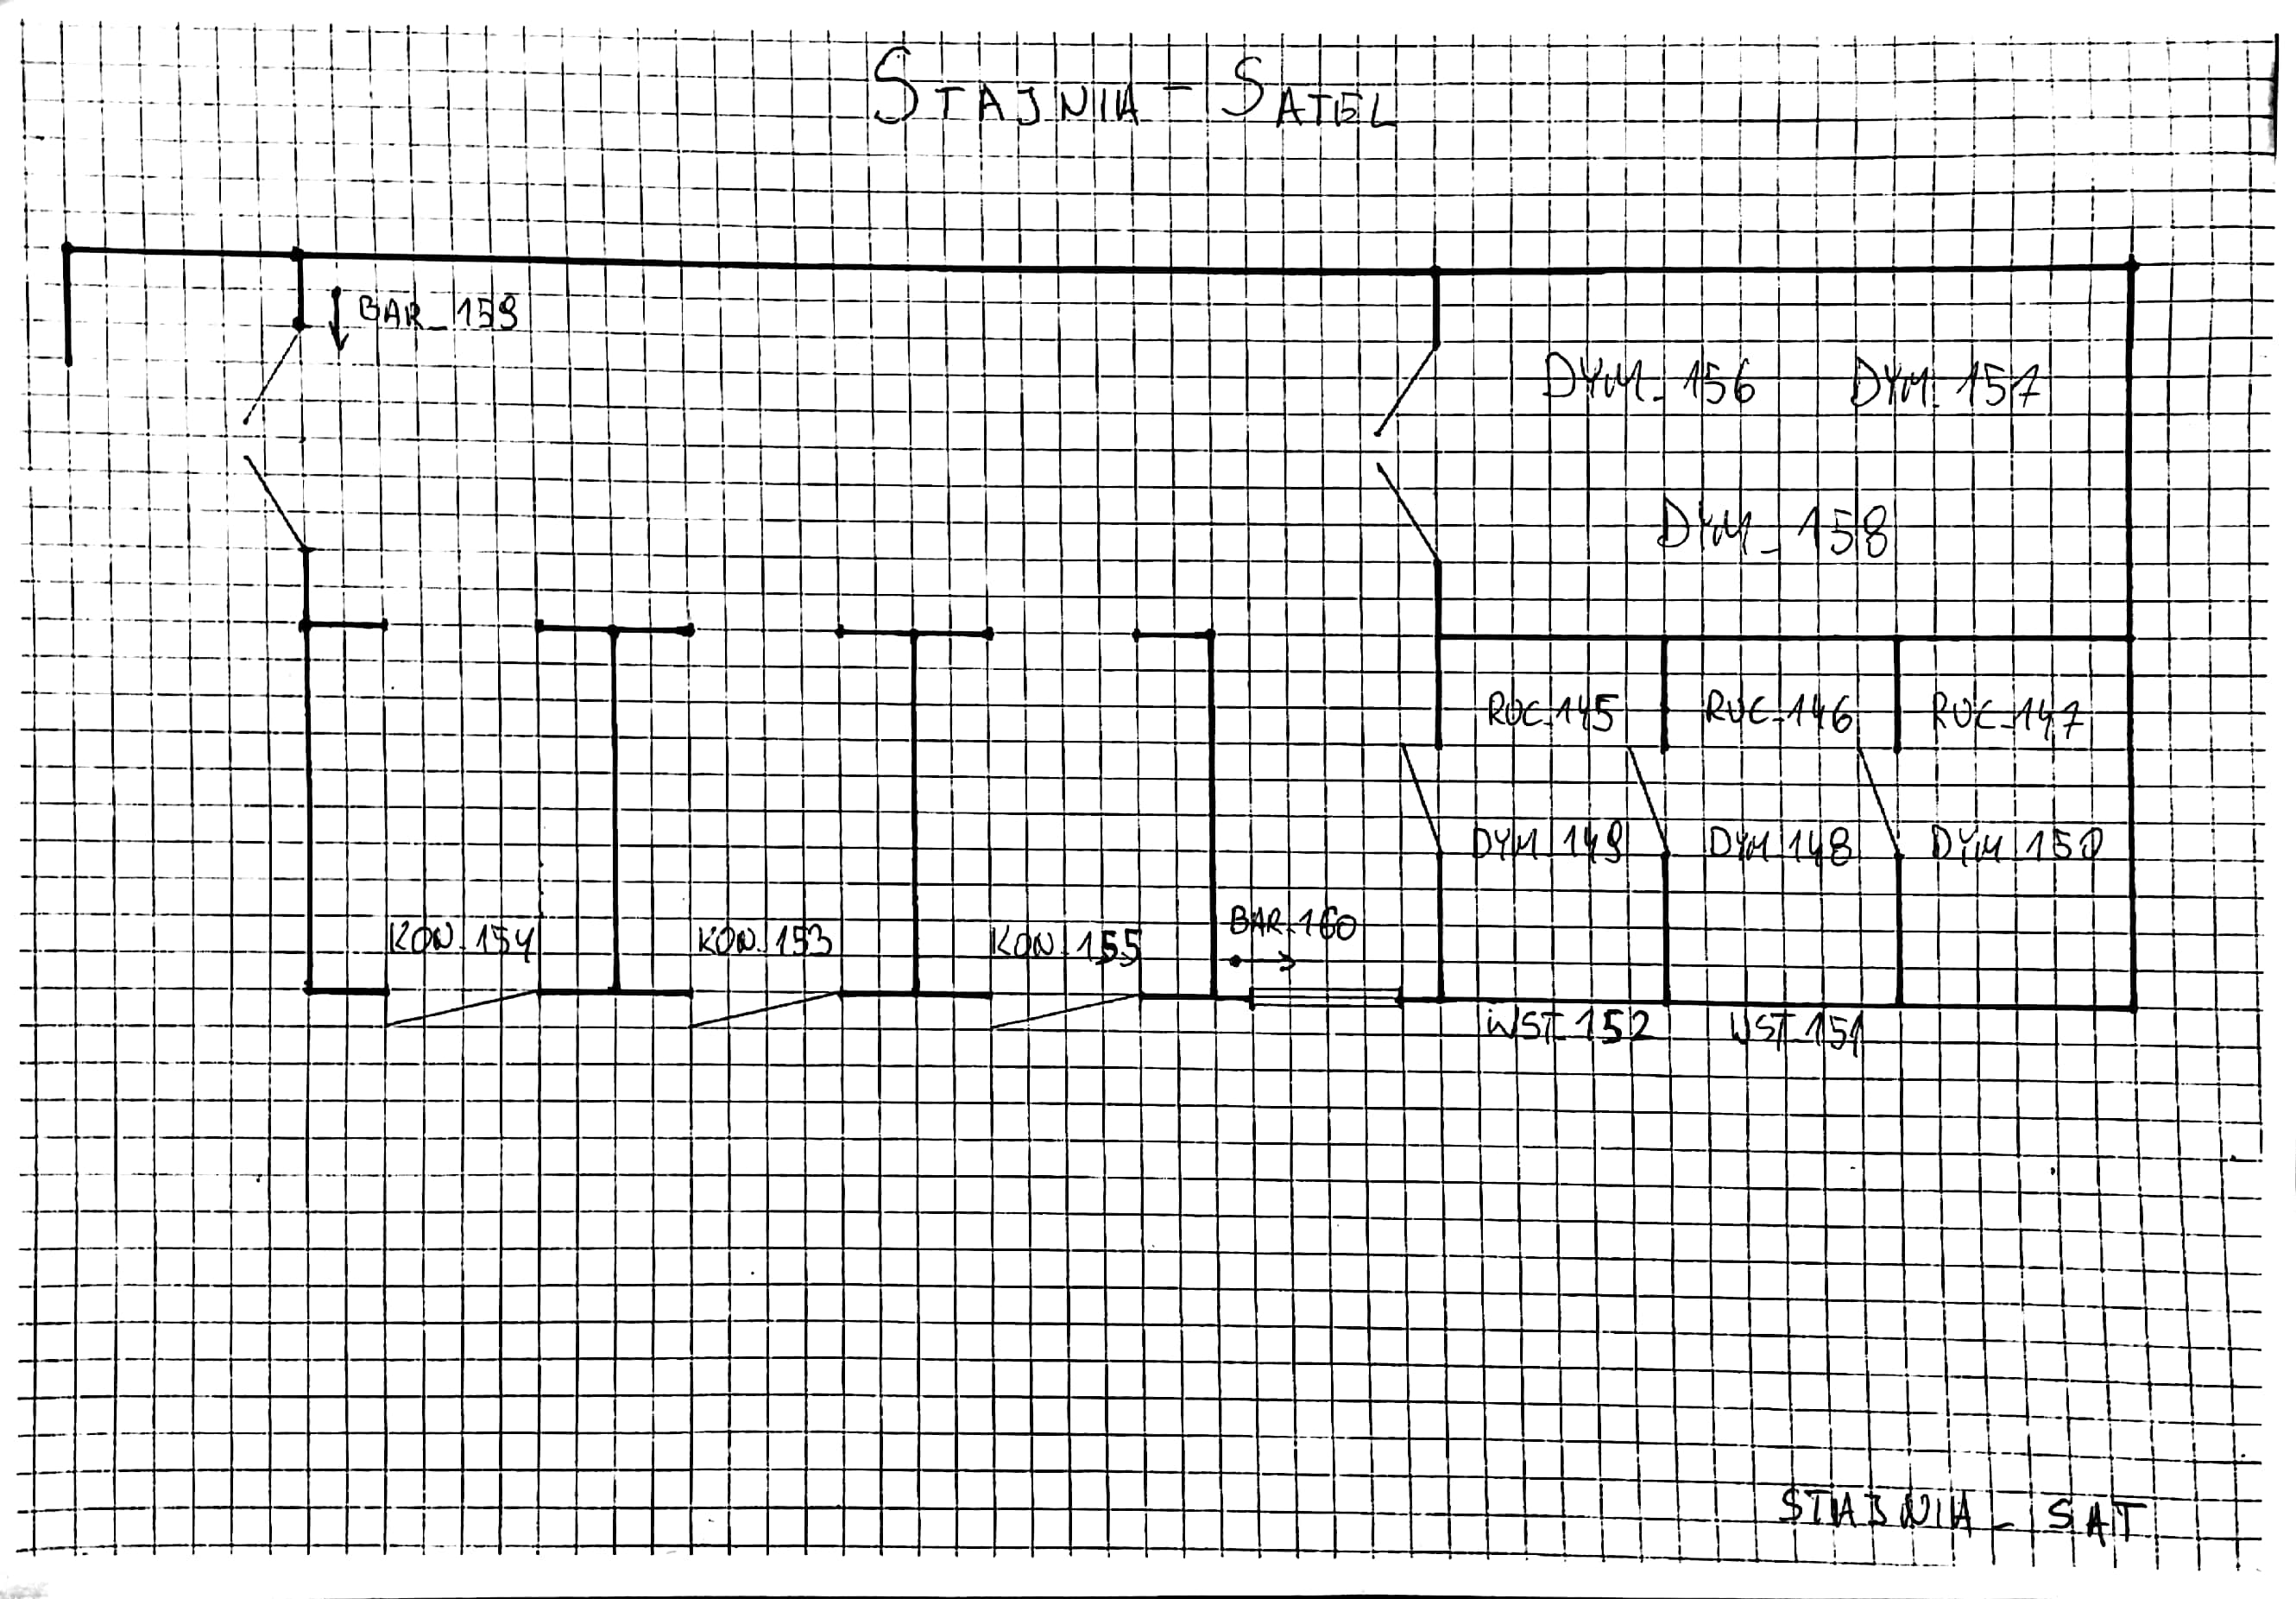 STAJNIA - SATEL
BAR_159
DYM_156 DYM_157
DYM_158
RUC_145 RUC_146 RUC_147
DYM_149 DYM_148 DYM_150
KON_154 KON_153 KON_155 BAR_160
WST_152 WST_151
STAJNIA_SAT